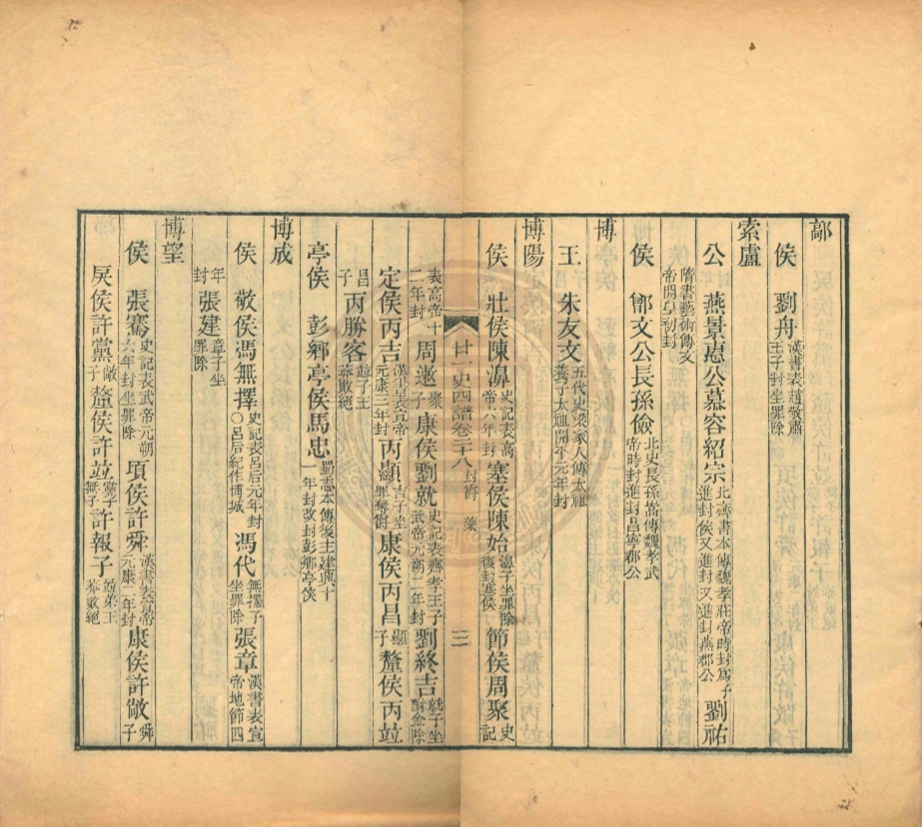 鄗
侯　劉舟漢書表趙敬肅王子封坐罪除
索盧
公　燕景惠公慕容紹宗北齊書本傳魏孝莊帝時封爲子進封侯又進封又進封燕郡公劉祐
隋書藝術傳文帝開皇初封
侯　鄫文公長孫儉北史長孫嵩傳魏孝武帝時封進封昌寧郡公
博
王　朱友文五代史梁家人傳太祖養子太祖開平元年封
博陽
侯　壯侯陳濞史記表高帝六年封塞侯陳始濞子坐罪除復封塞侯節侯周聚史記
表高帝十二年封周遬聚子康侯劉就史記表齊孝王子武帝元朔二年封劉終吉就子坐酎金除
廿一史四譜卷二十八封爵　藥　三
定侯丙吉漢書表宣帝元康三年封丙顯吉子坐罪奪爵康侯丙昌顯子釐侯丙竝
昌子丙勝客竝子王莽敗絕
亭侯　彭鄉亭侯馬忠蜀志本傳後主建興十一年封改封彭鄉亭侯
博成
侯　敬侯馮無擇史記表呂后元年封〇呂后紀作博城馮代無擇子坐罪除張章漢書表宣帝地節四
年封張建章子坐罪除
博望
侯　張騫史記表武帝元朔六年封坐罪除頃侯許舜漢書表宣帝元康二年封康侯許敞舜子
戾侯許黨敞子釐侯許竝黨子無子許報子竝弟王莽敗絕